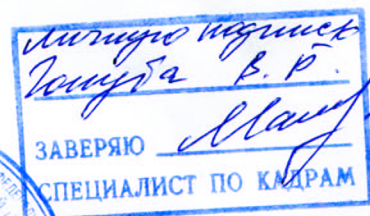 личную подпись
Голуба В. Р.
ЗАВЕРЯЮ
СПЕЦИАЛИСТ ПО КАДРАМ